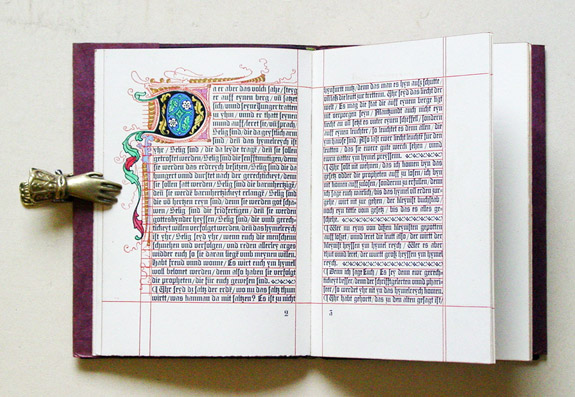 a er aber das volck sahe/ steyg
er auff eynen berg/ vñ satzet
sich/ vnnd seyne Jünger tratten
zu yhm/ vnnd er thatt seynen
mund auff/ leret sie/ vñ sprach.
Selig sind/ die da geystlich arm
sind/ denn das hymelreych ist
yhr/ Selig sind/ die da leyde trag/ denn sie sollen
getrostet werden/ Selig sind die senfftmütigen/ denn
sie werden das erdreych besitzen/ Selig sind/ die da
hungert vnnd durstet nach der gerechticheyt/ denn
sie sollen satt werden/ Selig sind die barmhertzigē/
denn sie werdē barmhertzickeyt erlangē/ Selig sind
die vō hertzen reyn sind/ denn sie werden got scha-
wen/ Selig sind die fridfertigen/ denn sie werden
gottes kynder heyssen/ Selig sind/ die vmb gerech-
ticheyt willen verfolget werden/ denn das hymelreych
ist yhr/ Selig seyd yhr/ wenn euch die menschenn
schmehen vnd verfolgen/ vnd reden allerley arges
widder euch so sie daran liegē vmb meynen willen.
Habt freud vnnd wonne/ Es wirt euch ym hymel
woll belonet werden/ denn also haben sie verfolgt
die propheten/ die fur euch gewesen sind.
Yhr seyd dz saltz der erdē/ wo nu das saltz thum
wirtt/ was kan man da mit saltzen? Es ist zu nicht
2
hynfurtt nutz/ denn das man es hyn auß schutte
vñ laß die leutt zur trettenn. Yhr seyd das liecht der
welt/ Es mag die stat die auff eynem berge ligt
nit verporgen seyn/ Man zundt auch nicht eyn
liecht an vñ setzt es vnter eynen scheffel/ sondern
auff eynen leuchter/ so leuchtet es denn allen/ die
ym hauße sind. Also last ewr liecht leuchtē fur den
leutten/ das sie ewre gute werck sehen/ vnnd
ewrn vatter ym hymel preyssenn.
Yhr solt nit wehnen/ das ich komen byn das
gesetz odder die propheten auff zu losen/ ich byn
nit komen auff zulosen/ sondern zu erfullen/ denn
ich sage euch warlich/ biß das hymel vnd erden zur-
gehe/ wirt nit zur gehen/ der kleynst buchstab/
noch eyn tittle vom gesetz/ biß das es alles ge-
schehe.
Wer nu eyns von dißen kleynsten gepotten
auff losset/ vnnd leret die leutt also/ der wirtt der
kleynst heyssen ym hymel reych/ Wer es aber
thut vnnd leret/ der wirtt groß heyssen ym hymel
reych.
Denn ich sage Euch/ Es sey denn ewr gerech-
tickeyt besser/ denn der schrifftgelerten vnnd phari-
seer/ so werdet yhr nit yn das hymelreych komen.
Yhr habt gehortt/ das zu den alten gesagt ist/
3